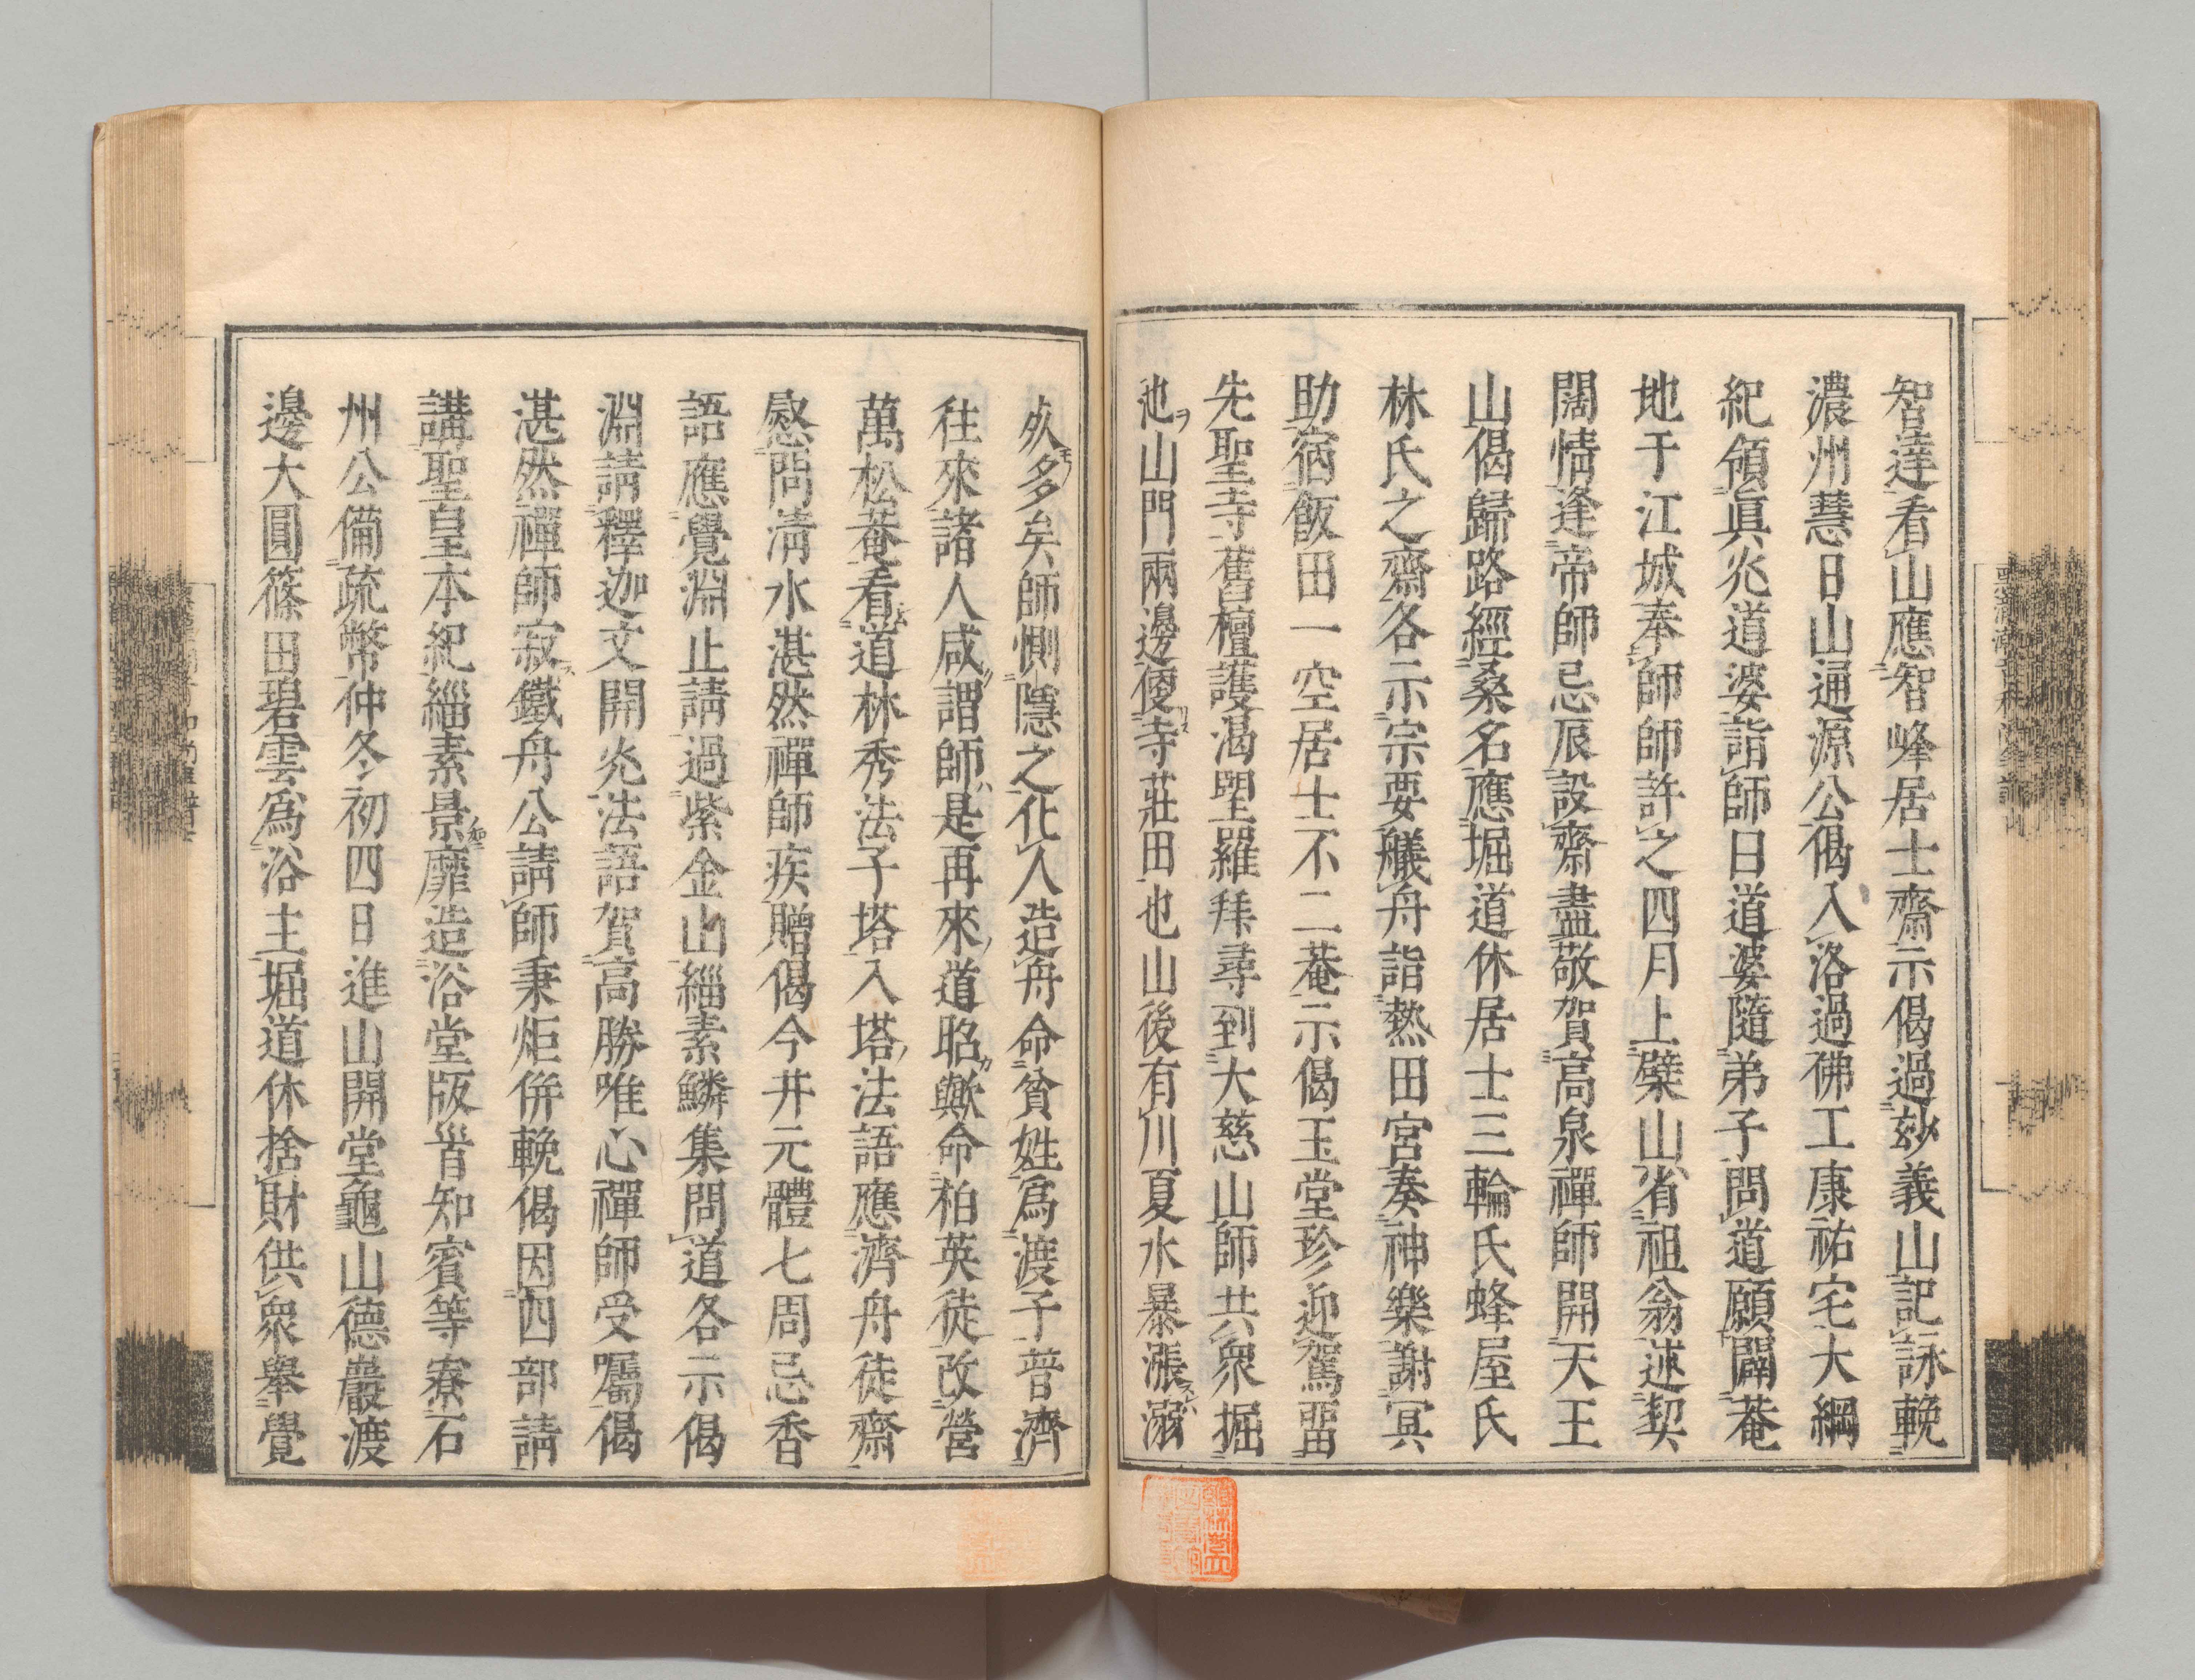 智達看山應智峰居士齋示偈過玅義山記詠輓
濃州慧日山通源公偈入洛過佛工康祐宅大綱
紀領眞兆道婆詣師曰道婆隨弟子問道願闢菴
地于江城奉師師許之四月上檗山省祖翁述契
闊情逢帝師忌辰設齋盡敬賀高泉禪師開天王
山偈歸路經桑名應堀道休居士三輪氏蜂屋氏
林氏之齋各示宗要艤舟詣熱田宮奏神樂謝冥
助宿飯田一空居士不二菴示偈玉堂珍迎駕畱
先聖寺舊檀護渴望羅拜尋到大慈山師共衆掘
池山門兩邊便寺莊田也山後有川夏水暴漲溺
死多矣師惻隱之化人造舟命貧姓爲渡子普濟
往來諸人咸謂師是再來道昭歟命柏英徒改營
萬松菴看道林秀法子塔入塔法語應濟舟徒齋
慰問淸水湛然禪師疾贈偈今井元體七周忌香
語應覺淵止請過紫金山緇素鱗集問道各示偈
淵請釋迦文開光法語賀高勝唯心禪師受囑偈
湛然禪師寂鐵舟公請師秉炬併輓偈因四部請
講聖皇本紀緇素景靡造浴堂版首知賓等寮石
州公備疏幣仲冬初四日進山開堂龜山德巖渡
邊大圓篠田碧雲爲浴主堀道休捨財供衆舉覺